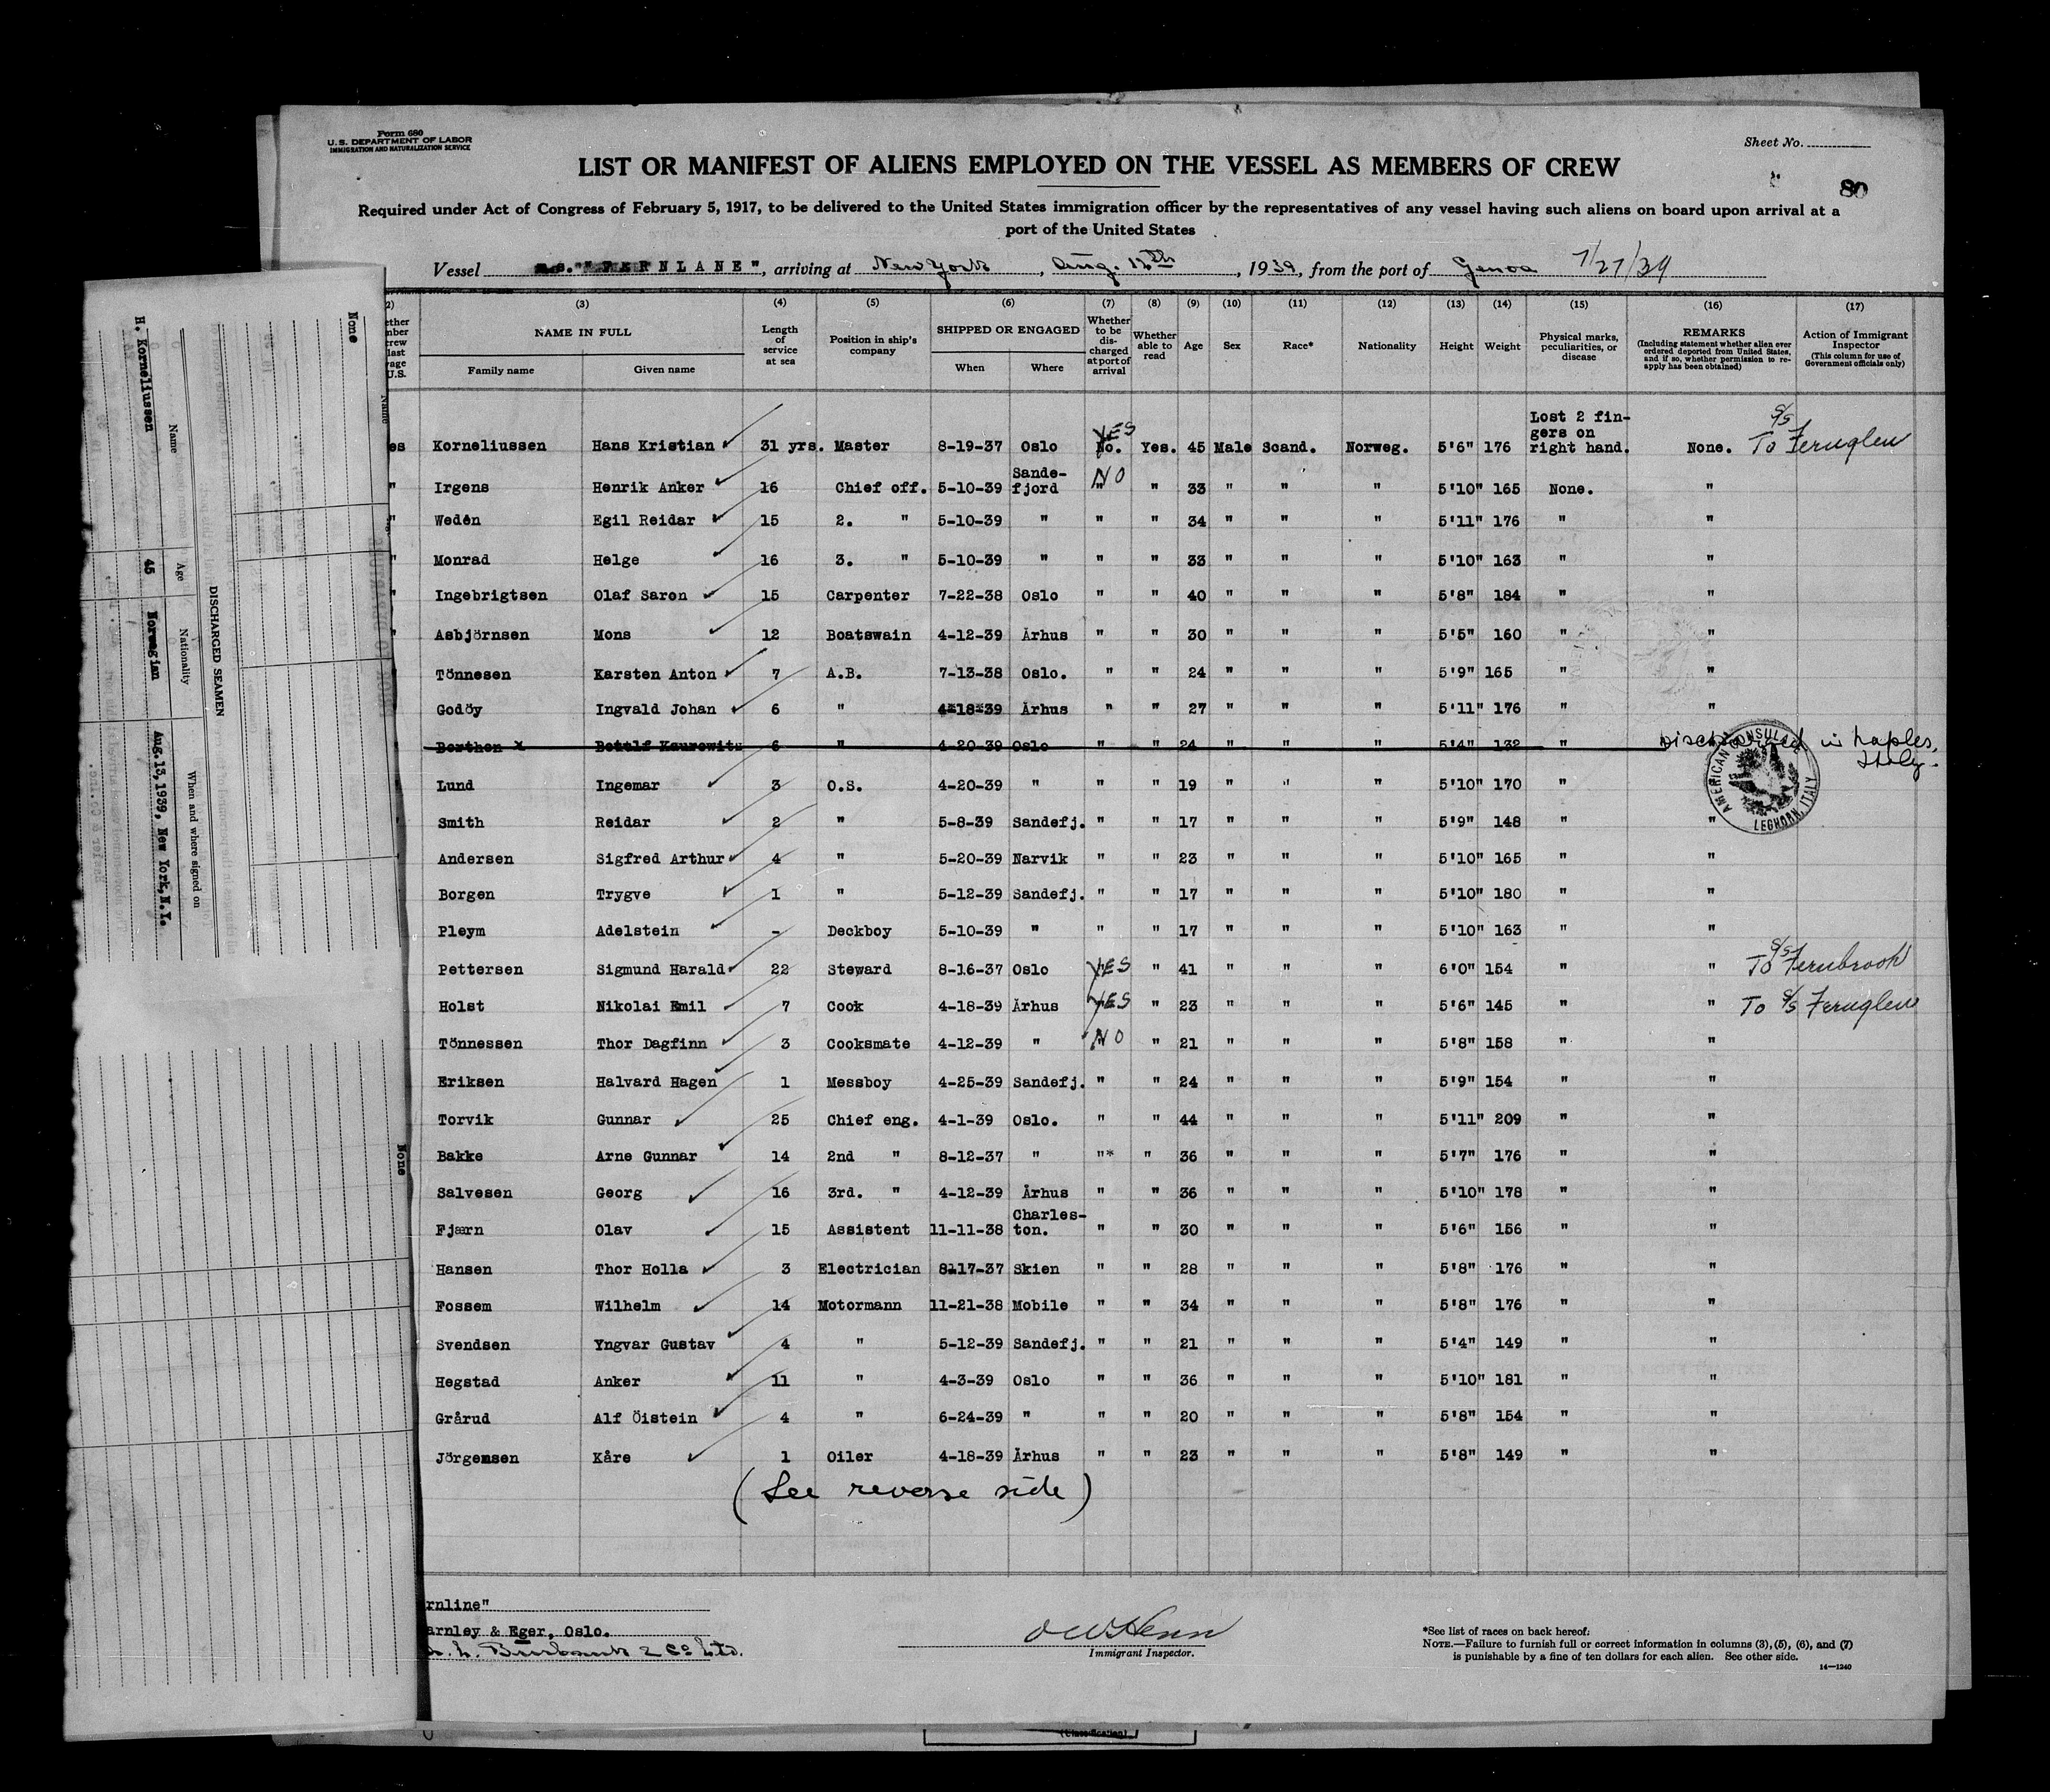 Form 680
U. S. DEPARTMENT OF LABOR
IMMIGRATION AND NATURALIZATION SERVICE
Sheet No.
80
LIST OR MANIFEST OF ALIENS EMPLOYED ON THE VESSEL AS MEMBERS OF CREW
Required under Act of Congress of February 5, 1917, to be delivered to the United States immigration officer by the representatives of any vessel having such aliens on board upon arrival at a
port of the United States
Vessel "FERNLANE", arriving at New York, Aug. 12th, 1939, from the port of Genoa 7/27/39
(3) (4) (5) (6) (7) (8) (9) (10) (11) (12) (13) (14) (15) (16) (17)
NAME IN FULL
Family name Given name
Length of service at sea
Position in ship's company
SHIPPED OR ENGAGED
When Where
Whether to be discharged at port of arrival
Whether able to read
Age Sex Race* Nationality Height Weight
Physical marks, peculiarities, or disease
REMARKS
(Including statement whether alien ever ordered deported from United States, and if so, whether permission to re-apply has been obtained)
Action of Immigrant Inspector
(This column for use of Government officials only)
es Korneliussen Hans Kristian 31 yrs. Master 8-19-37 Oslo No. YES Yes. 45 Male Scand. Norweg. 5'6" 176 Lost 2 fin-gers on right hand. None. To S/S Fernglen
" Irgens Henrik Anker 16 Chief off. 5-10-39 Sande-fjord " NO " 33 " " " 5'10" 165 None. "
" Wedén Egil Reidar 15 2. " 5-10-39 " " " 34 " " " 5'11" 176 " "
" Monrad Helge 16 3. " 5-10-39 " " " 33 " " " 5'10" 163 " "
" Ingebrigtsen Olaf Saron 15 Carpenter 7-22-38 Oslo " " 40 " " " 5'8" 184 " "
" Asbjörnsen Mons 12 Boatswain 4-12-39 Århus " " 30 " " " 5'5" 160 " "
Tönnesen Karsten Anton 7 A.B. 7-13-38 Oslo. " " 24 " " " 5'9" 165 " "
Godöy Ingvald Johan 6 " 4-18-39 Århus " " 27 " " " 5'11" 176 " "
Berthen x 6 " 4-20-39 Oslo " " 24 " " " 5'4" 132 " Discharged in Naples, Italy.
Lund Ingemar 3 O.S. 4-20-39 " " " 19 " " " 5'10" 170 "
AMERICAN CONSULATE LEGHORN, ITALY
Smith Reidar 2 " 5-8-39 Sandefj. " " 17 " " " 5'9" 148 " "
Andersen Sigfred Arthur 4 " 5-20-39 Narvik " " 23 " " " 5'10" 165 " "
Borgen Trygve 1 " 5-12-39 Sandefj. " " 17 " " " 5'10" 180 " "
Pleym Adelstein - Deckboy 5-10-39 " " " 17 " " " 5'10" 163 " "
Pettersen Sigmund Harald 22 Steward 8-16-37 Oslo YES " 41 " " " 6'0" 154 " " To S/S Fernbrook
Holst Nikolai Emil 7 Cook 4-18-39 Århus YES " 23 " " " 5'6" 145 " " To S/S Fernglen
Tönnessen Thor Dagfinn 3 Cooksmate 4-12-39 " NO " 21 " " " 5'8" 158 " "
Eriksen Halvard Hagen 1 Messboy 4-25-39 Sandefj. " " 24 " " " 5'9" 154 " "
Torvik Gunnar 25 Chief eng. 4-1-39 Oslo. " " 44 " " " 5'11" 209 " "
Bakke Arne Gunnar 14 2nd " 8-12-37 " "* " 36 " " " 5'7" 176 " "
Salvesen Georg 16 3rd. " 4-12-39 Århus " " 36 " " " 5'10" 178 " "
Fjærn Olav 15 Assistent 11-11-38 Charles-ton. " " 30 " " " 5'6" 156 " "
Hansen Thor Holla 3 Electrician 8-17-37 Skien " " 28 " " " 5'8" 176 " "
Fossem Wilhelm 14 Motormann 11-21-38 Mobile " " 34 " " " 5'8" 176 " "
Svendsen Yngvar Gustav 4 " 5-12-39 Sandefj. " " 21 " " " 5'4" 149 " "
Hegstad Anker 11 " 4-3-39 Oslo " " 36 " " " 5'10" 181 " "
Grårud Alf Öistein 4 " 6-24-39 " " " 20 " " " 5'8" 154 " "
Jörgensen Kåre 1 Oiler 4-18-39 Århus " " 23 " " " 5'8" 149 " "
(See reverse side)
rnline"
arnley & Eger, Oslo.
Burbank & Co Ltd.
Immigrant Inspector.
*See list of races on back hereof.
NOTE.—Failure to furnish full or correct information in columns (3), (5), (6), and (7)
is punishable by a fine of ten dollars for each alien. See other side.
14—1240
DISCHARGED SEAMEN
Name Age Nationality When and where signed on
H. Korneliussen 45 Norwegian Aug.13,1939, New York,N.Y.
None
None
(Classification)